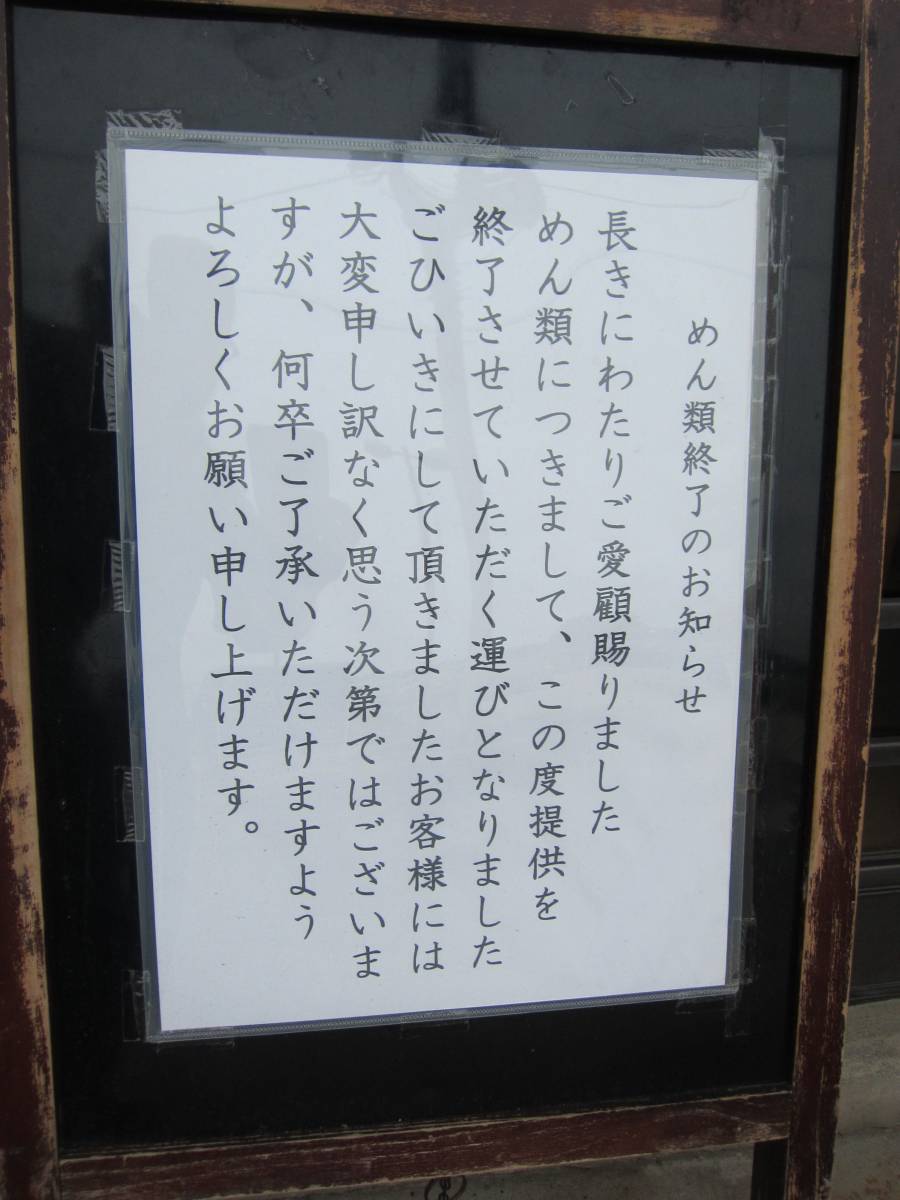 めん類終了のお知らせ
長きにわたりご愛顧賜りました
めん類につきまして、この度提供を
終了させていただく運びとなりました
ごひいきにして頂きましたお客様には
大変申し訳なく思う次第ではございま
すが、何卒ご了承いただけますよう
よろしくお願い申し上げます。